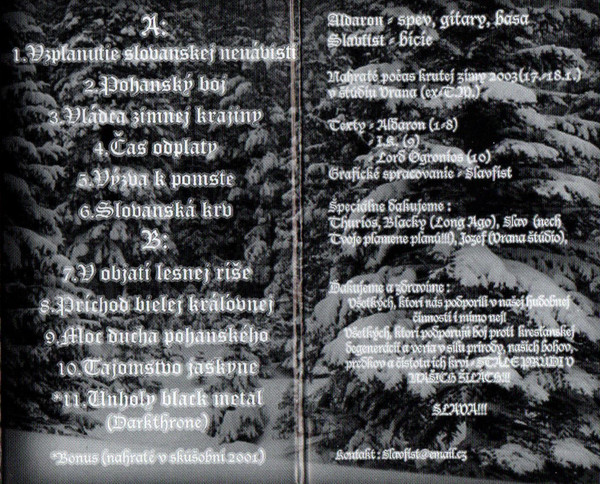 A:
1.Vzplanutie slovanskej nenávisti
2.Pohanský boj
3.Vládca zimnej krajiny
4.Čas odplaty
5.Výzva k pomste
6.Slovanská krv
B:
7.V objatí lesnej ríše
8.Príchod bielej kráľovnej
9.Moc ducha pohanského
10.Tajomstvo jaskyne
*11.Unholy black metal
(Darkthrone)
*Bonus (nahraté v skúšobni 2001)
Aldaron - spev, gitary, basa
Slavfist - bicie
Nahraté počas krutej zimy 2003(17.-18.1.)
v štúdiu Vrana (ex-T.M.)
Texty - Aldaron (1-8)
- I.S. (9)
- Lord Ogrontos (10)
Grafické spracovanie - Slavfist
Špeciálne ďakujeme :
Thurios, Blacky (Long Ago), Slav (nech
Tvoje plamene planú!!!), Jozef (Vrana štúdio),
Ďakujeme a zdravíme :
Všetkých, ktorí nás podporili v našej hudobnej
činnosti i mimo nej!
Všetkých, ktorí podporujú boj proti kresťanskej
degenerácii a veria v silu prírody, našich bohov,
predkov a čistota ich krvi - STÁLE PRÚDI V
VAŠICH ŽILÁCH!!!
SLÁVA!!!
Kontakt : Slavfist@email.cz